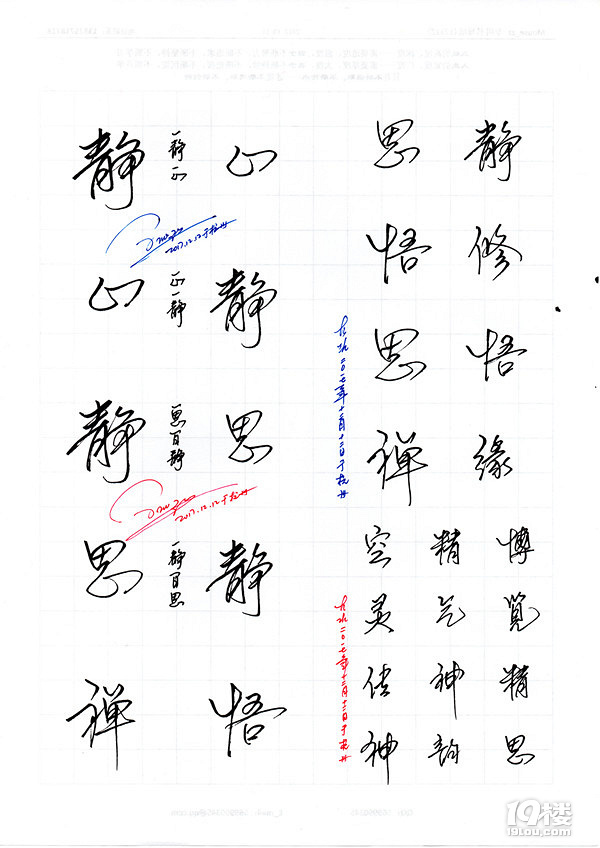 静修悟缘
思悟思禅
博览精思
精气神韵
空灵传神
二〇一七年十二月十二日于杭州
二〇一七年十二月十二日于杭州
静 心
2017.12.12于杭州
心 静
静 思
一思百静
2017.12.12于杭州
思 静
一静百思
禅 悟
19楼
19lou.com